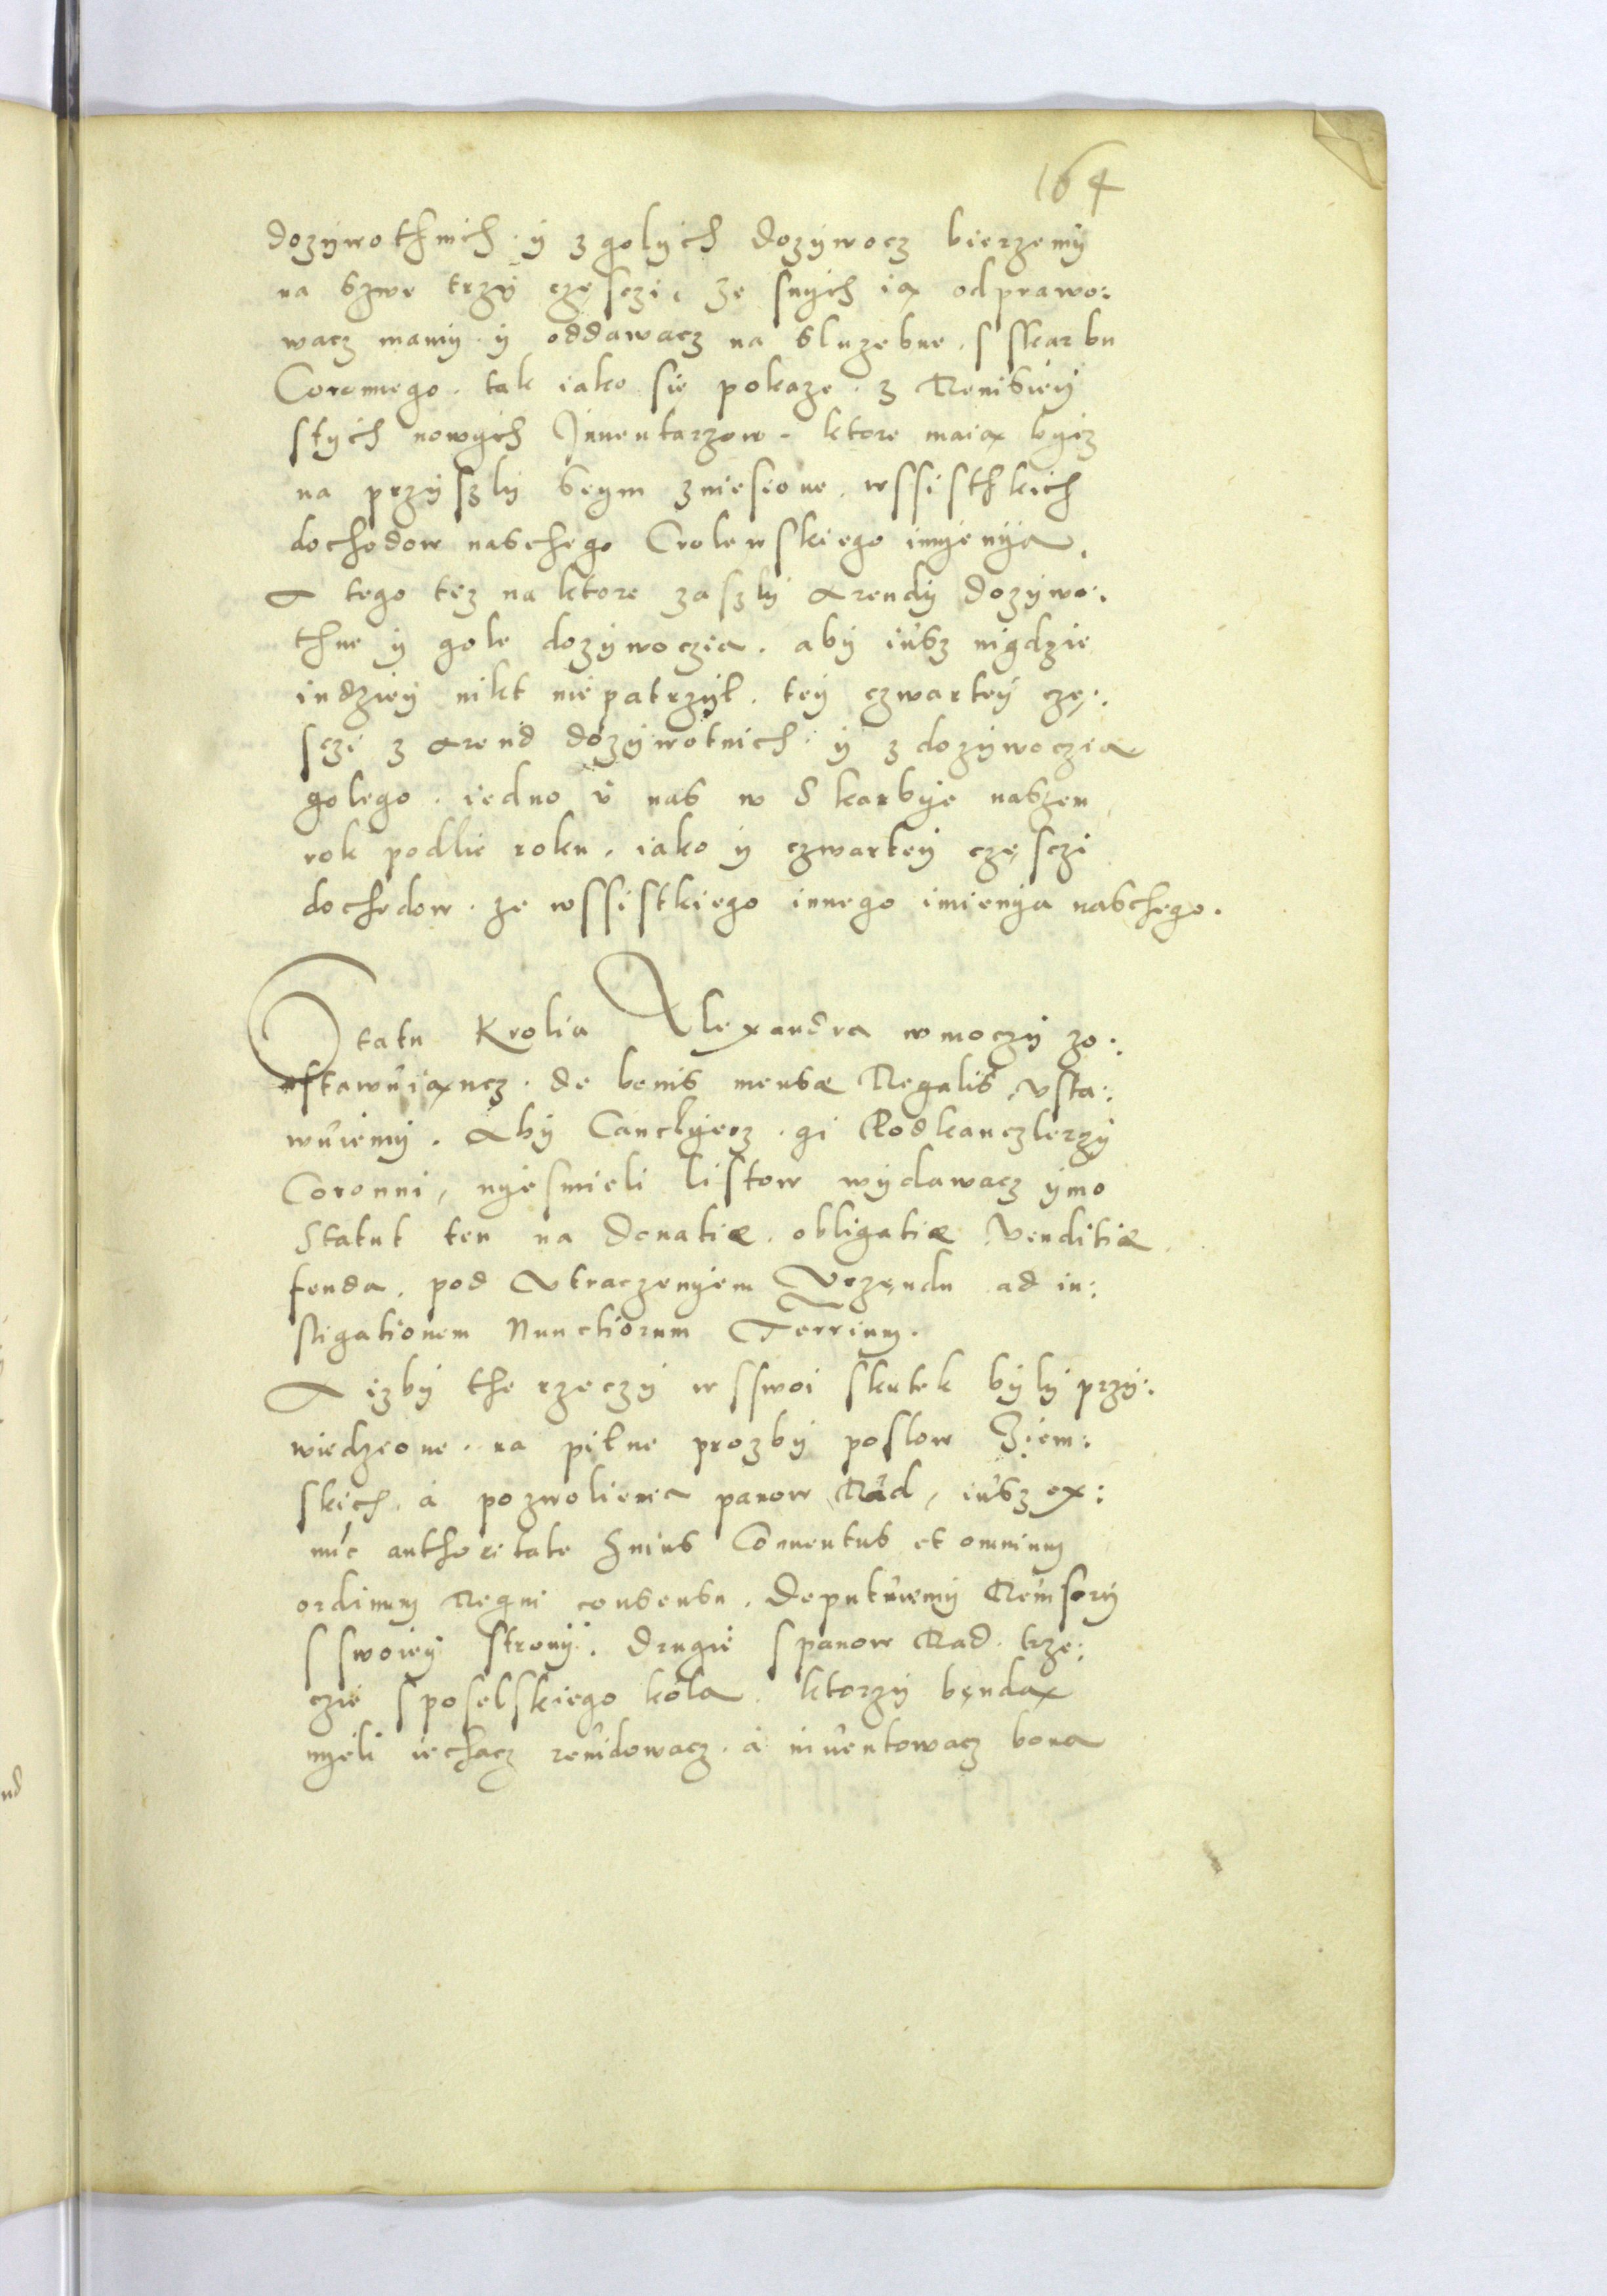 164
dozywothnich · y z golych dozywocz bierzemy
na szwe trzy częsczi, ze snych ią odprawo:
wacz mamy · y oddawacz na sluzebne · s skarbu
Coronnego · tak iako sie pokaze · z Reuisiey
stych nowych Innentarzow · ktore maią bycz
na przyszly seym zniesione, wssisthkich
dochodow naschego Crolewskiego imyenya,
A tego tez na ktore zaszly Arendy dozywo:
thne y gole dozywoczia · aby iusz nigdzie
indziey nikt nie patrzyl · tey czwartey czę:
sczi z Arend dozywotnich · y z dozywoczia
golego · iedno u nas w Skarbye naszem
rok podlie roku, iako y czwartey częsczi
dochodow · ze wssistkiego innego imienya naschego.
Statu Krolia Alexandra w moczy zo:
stawuiąncz · de bonis mensæ Regalis, Vsta:
wuiemy · Aby Canclyerz · gi Podkanczlerzy
Coronni, nyesmieli listow wydawacz ymo
Statut ten na Donatiæ · obligatiæ Venditiæ
feuda, pod Vtraczenyem Vrzęndu ad in:
stigationem Nunctiorum Terrium.
A izby the rzeczy w sswoi skutek byly przy:
wiedzione · na pilne prozby poslow Ziem:
skich · a pozwolienia panow Rad, iusz ex:
nuc authoritate huius Conuentus et omnium
ordinum Regni consensu · Deputuiemy Reuisory
s swoiey strony · drugie s panow Rad · trze:
czie s poselskiego kola · ktorzy bęndą
myeli iechacz reuidowacz · a inuentowacz bona